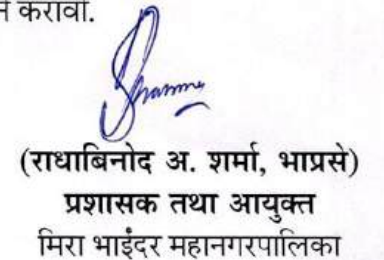 करावी.
Sharma
(राधाबिनोद अ. शर्मा, भाप्रसे)
प्रशासक तथा आयुक्त
मिरा भाईंदर महानगरपालिका